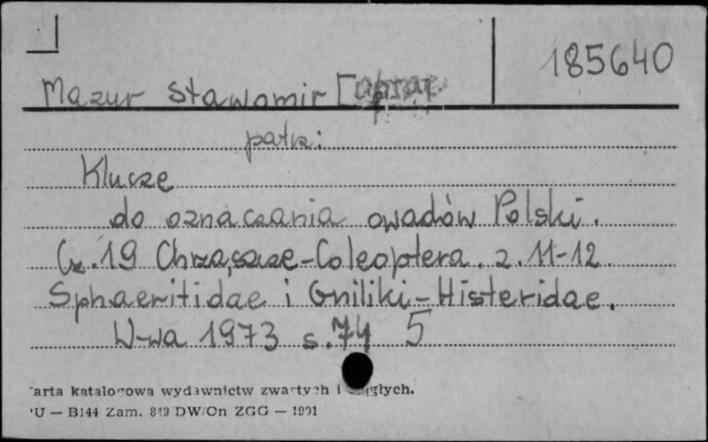 185640
Mazur Sławomir [oprac.
patrz:
Klucze
do oznaczania owadów Polski.
Cz. 19 Chrząszcze-Coleoptera. z. 11-12
Sphaeritidae i Gniliki-Histeridae.
W-wa 1973 s. 74 5
arta katalogowa wydawnictw zwartych i ciągłych.
PU — B144 Zam. 849 DW/On ZGG — 1991